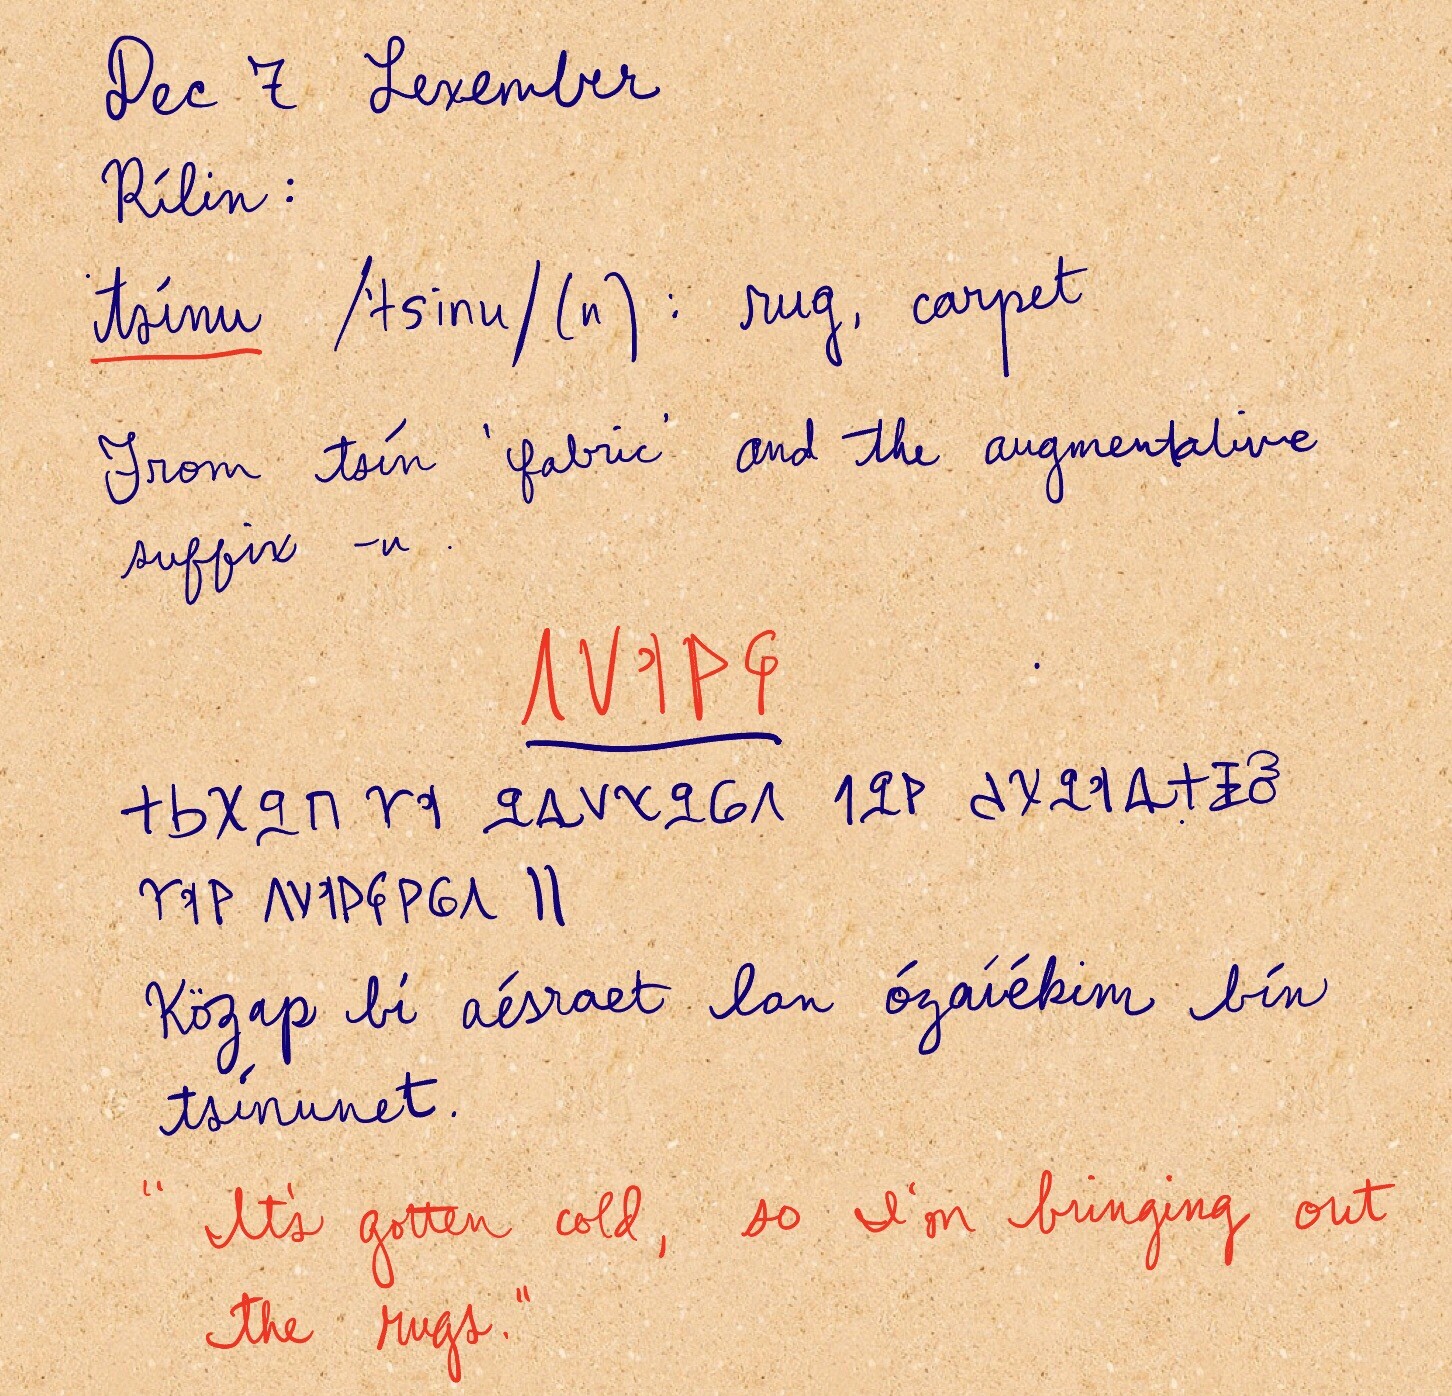 Dec 7 Lexember
Rílin:
tsínu /tsinu/ (n): rug, carpet
From tsín 'fabric' and the augmentative
suffix -u.
Közap bí aésraet lan ózaíékim bín
tsínunet.
"It's gotten cold, so I'm bringing out
the rugs."